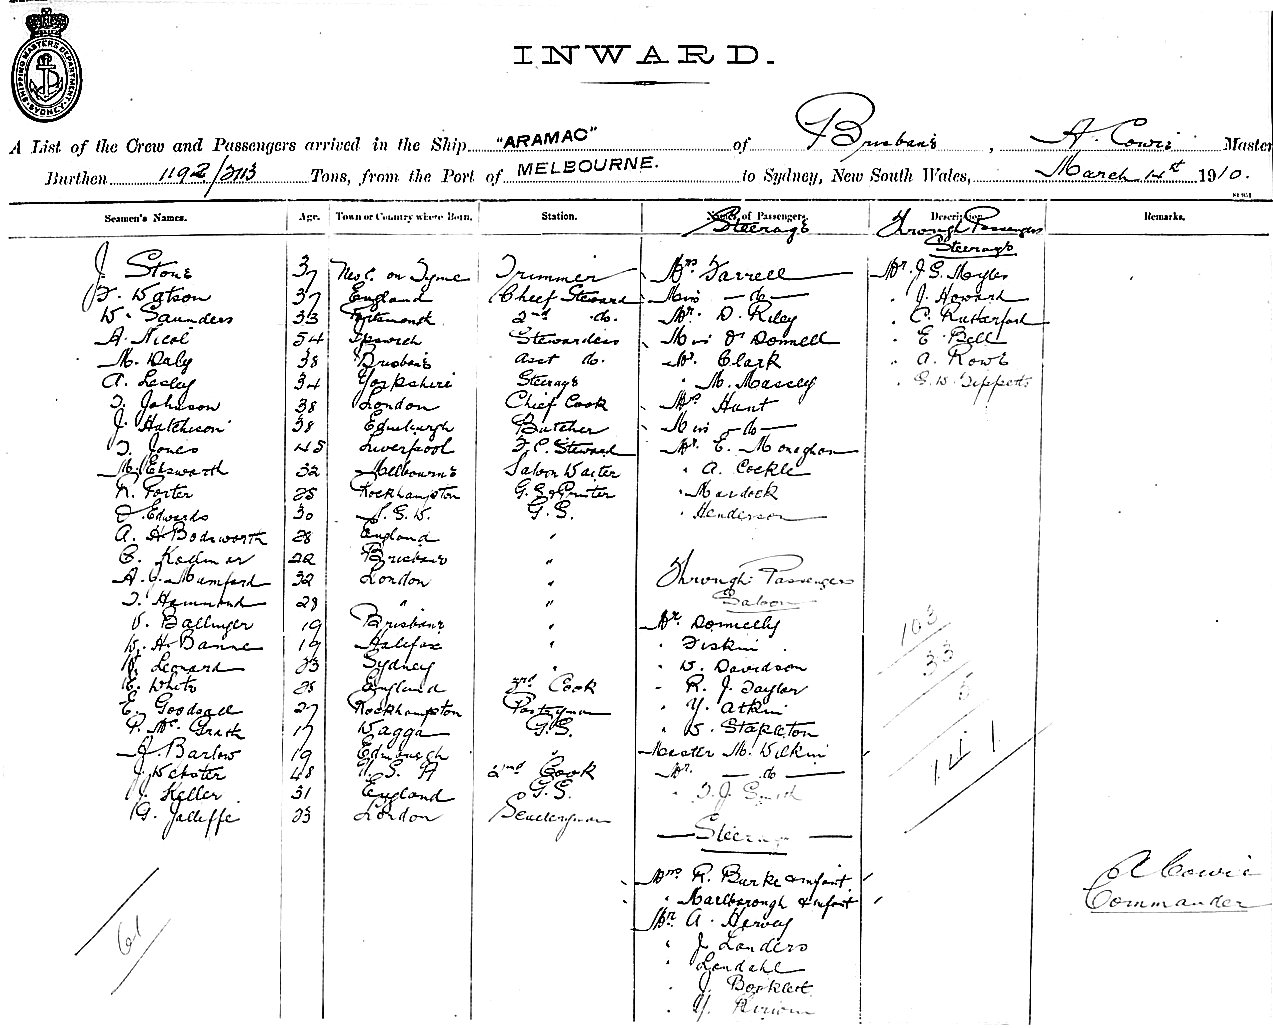 SHIPPING MASTERS DEPARTMENT SYDNEY
INWARD.
A List of the Crew and Passengers arrived in the Ship "ARAMAC" of Brisbane, A. Cowie Master
Burthen 1192/2113 Tons, from the Port of MELBOURNE. to Sydney, New South Wales, March 14th 1910.
Seamen's Names. Age. Town or Country where Born. Station. Names of Passengers. Description Remarks.
Steerage Through Passengers
Steerage
J. Stone 37 Newc. on Tyne Trimmer Mrs Farrell Mr. J. G. Myles
F. Watson 37 England Chief Steward Miss -do- " J. Howard
W. Saunders 33 Portsmouth 2nd do. Mr. D. Riley " C. Rutherford
A. Nicol 54 Ipswich Stewardess Miss O'Donnell " E. Bell
M. Daly 38 Brisbane asst do. Mr. Clark " A. Rowe
A. Lesley 34 Yorkshire Steerage " M. Massey " G. W. Tippets
T. Johnson 38 London Chief Cook Mrs Hunt
J. Hutchison 38 Edinburgh Butcher Miss -do-
T. Jones 45 Liverpool F. C. Steward Mr. E. Monaghan
M. Elsworth 32 Melbourne Saloon Waiter " A. Cockle
R. Porter 25 Rockhampton G. S. & Printer " Murdock
Edwards 30 G.S. " Henderson
A. H. Bodsworth 28 England "
C. Kellmar 22 Brisbane "
A. J. Mumford 32 London " Through Passengers
T. Hammond 28 " " Saloon
V. Ballinger 19 Brisbane " Mr. Donnelly
W. H. Banne 19 Halifax " " Diskin
Leonard 23 Sydney " " W. Davidson
E. White 28 England 3rd Cook " R. J. Taylor
E. Goodsall 27 Rockhampton Pastryman " Y. Atkin
P. McGrath 17 Wagga G.S. " W. Stapleton
J. Barlow 19 Edinburgh " Master M. Wilkin
J. Webster 48 U S A 2nd Cook Mr. -do-
J. Keller 31 England G.S. " T. J. Smith
G. Jalleffe 23 London
Steerage
Mrs R. Burke & infant
" Marlborough & infant
Mr. A. Harvey
" J. Landers
" Lendahl
" J.
" Y.
103
33
5
141
61
A Cowie
Commander